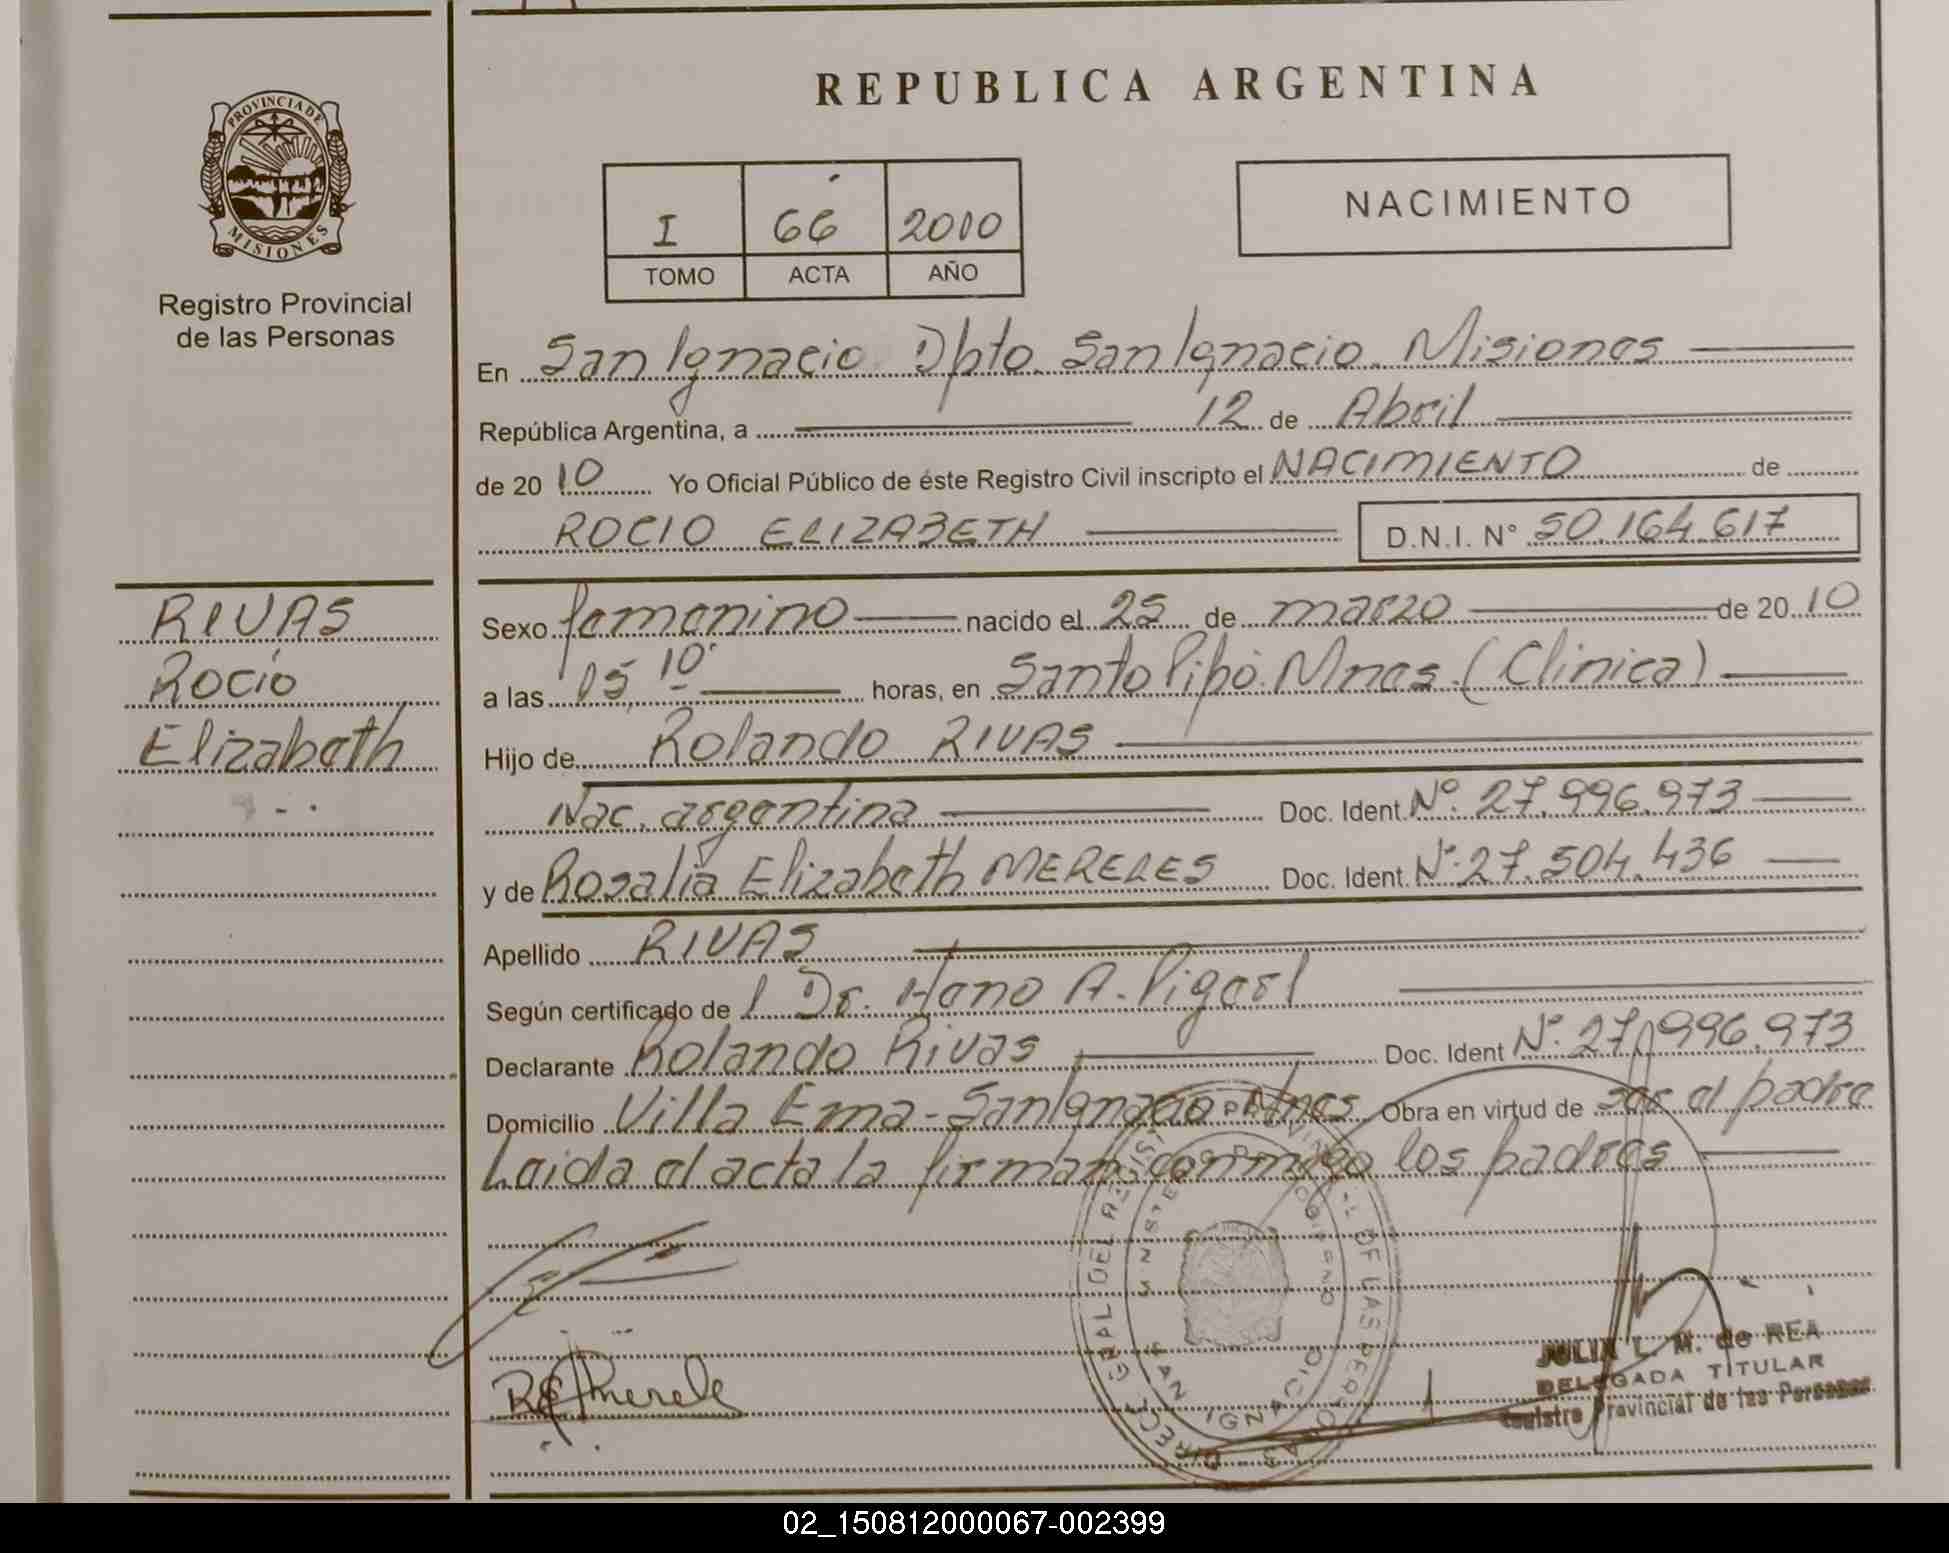 REPUBLICA ARGENTINA
PROVINCIA DE MISIONES
Registro Provincial
de las Personas
I 66 2010
TOMO ACTA AÑO
NACIMIENTO
En San Ignacio Dpto. San Ignacio. Misiones
República Argentina, a 12 de Abril
de 2010 Yo Oficial Público de éste Registro Civil inscripto el NACIMIENTO de
ROCIO ELIZABETH D.N.I. N° 50.164.617
RIVAS
Rocío
Elizabeth
Sexo femenino nacido el 25 de marzo de 2010
a las 05,10 horas, en Santo Pipó. Mnes. (Clinica)
Hijo de Rolando RIVAS
Nac. argentina Doc. Ident. Nº. 27.996.973
y de Rosalia Elizabeth MERELES Doc. Ident. Nº. 27.504.436
Apellido RIVAS
Según certificado de l Dr. A.
Declarante Rolando Rivas Doc. Ident Nº. 27.996.973
Domicilio Villa Ema - San Ignacio Mnes Obra en virtud de ser el padre
Leida el acta la firman conmigo los padres
SAN IGNACIO
JULIA L. M. de REA
DELEGADA TITULAR
Registro Provincial de las Personas
02_150812000067-002399